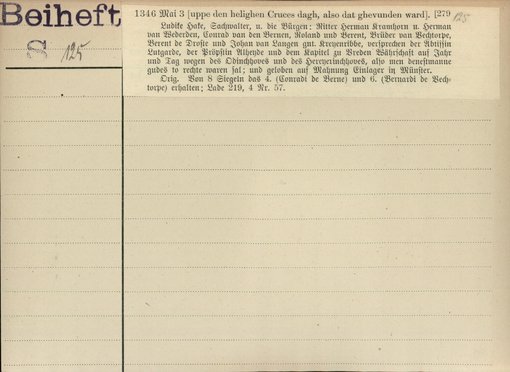 Beiheft
2
125
1346 Mai 3 [uppe den helighen Cruces dagh, also dat ghevunden ward]. [279 125
Ludike Hake, Sachwalter, u. die Bürgen: Ritter Herman Kramhorn u. Herman
van Wederden, Conrad van den Vernen, Roland und Berent, Brüder van Vechtorpe,
Berent de Droste und Johan van Langen gnt. Kreyenribbe, versprechen der Äbtissin
Lutgarde, der Pröpstin Alheyde und dem Kapitel zu Vreden Währschaft auf Jahr
und Tag wegen des Odinchhoves und des Herreyerinchhoves, also men denestmanne
gudes to rechte waren sal; und geloben auf Mahnung Einlager in Münster.
Orig. Von 8 Siegeln das 4. (Conradi de Verne) und 6. (Bernardi de Vech-
torpe) erhalten; Lade 219, 4 Nr. 57.